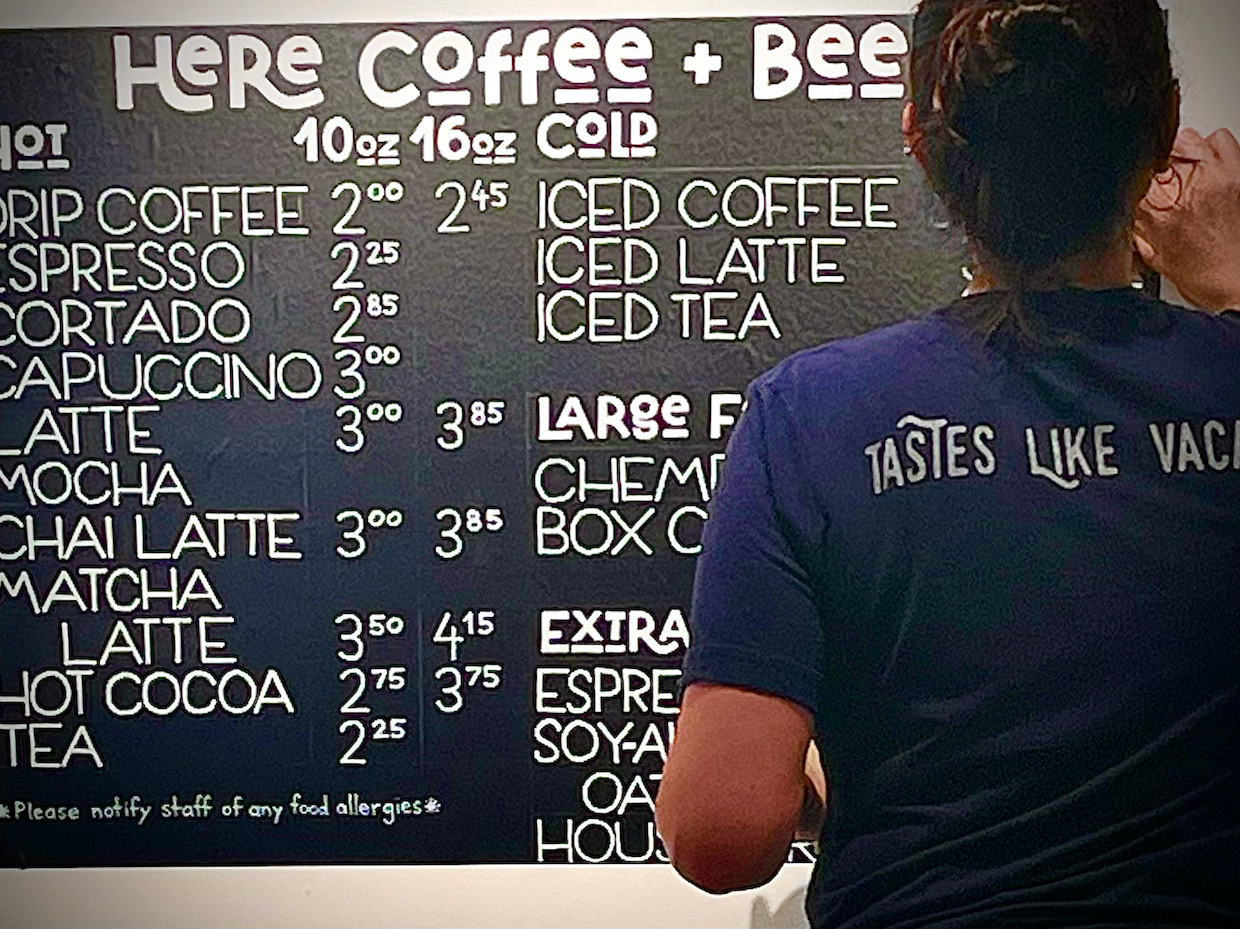 HeRe Coffee + Bee
HOT 10oz 16oz COLD
DRIP COFFEE 2⁰⁰ 2⁴⁵ ICED COFFEE
ESPRESSO 2²⁵ ICED LATTE
CORTADO 2⁸⁵ ICED TEA
CAPUCCINO 3⁰⁰
LATTE 3⁰⁰ 3⁸⁵ LARGe
MOCHA
CHAI LATTE 3⁰⁰ 3⁸⁵ BOX
MATCHA
LATTE 3⁵⁰ 4¹⁵ EXTRA
HOT COCOA 2⁷⁵ 3⁷⁵ ESPRE
TEA 2²⁵ SOY-A
OAT
*Please notify staff of any food allergies*
HOUS
TASTES LIKE VACA